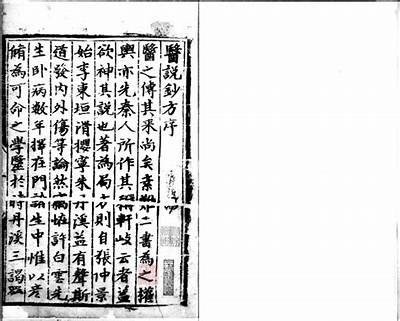 醫說鈔方序
醫之傳其來尚矣素難二書為之權
輿亦先秦人所作其稱軒岐云者蓋
欲神其說也著為局方則自張仲景
始李東垣滑攖寧朱丹溪益有聲斯
道發内外傷等論然恠許白雲先
生卧病數年擇在門諸生中惟以彦
脩為可命之學醫於時丹溪三謁